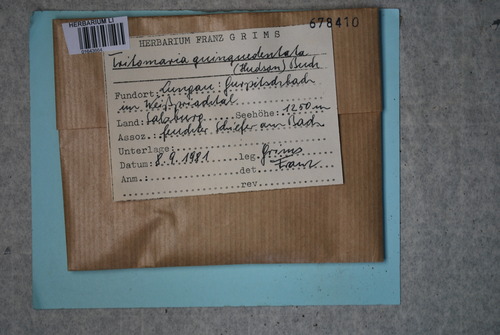 678410
HERBARIUM LI
HERBARIUM FRANZ GRIMS
Tritomaria quinquedentata
(Hudson) Buch
Fundort: Lungau: Gurpitschbach
im Weißpriachtal
Land: Salzburg Seehöhe: 1250 m
Assoz.: feuchter Schiefer am Bach
Unterlage:
Datum: 8.9.1981 leg. Grims
Anm.: det. Franz
rev.